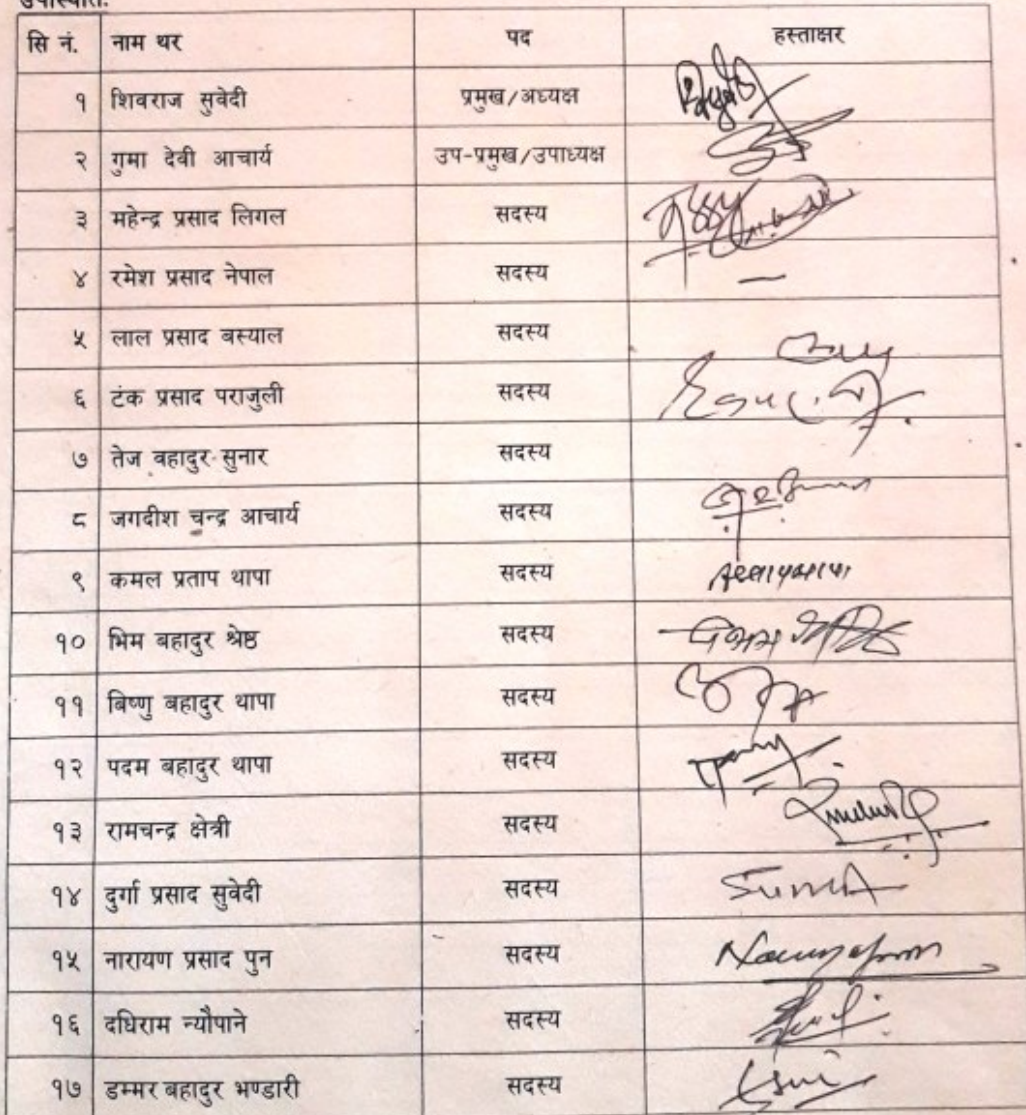 उपस्थितिः
सि नं. नाम थर पद हस्ताक्षर
१ शिवराज सुवेदी प्रमुख/अध्यक्ष
२ गुमा देवी आचार्य उप-प्रमुख/उपाध्यक्ष
३ महेन्द्र प्रसाद लिगल सदस्य
४ रमेश प्रसाद नेपाल सदस्य
५ लाल प्रसाद बस्याल सदस्य
६ टंक प्रसाद पराजुली सदस्य
७ तेज वहादुर सुनार सदस्य
८ जगदीश चन्द्र आचार्य सदस्य
९ कमल प्रताप थापा सदस्य
१० भिम बहादुर श्रेष्ठ सदस्य
११ बिष्णु बहादुर थापा सदस्य
१२ पदम बहादुर थापा सदस्य
१३ रामचन्द्र क्षेत्री सदस्य
१४ दुर्गा प्रसाद सुवेदी सदस्य
१५ नारायण प्रसाद पुन सदस्य
१६ दधिराम न्यौपाने सदस्य
१७ डम्मर बहादुर भण्डारी सदस्य